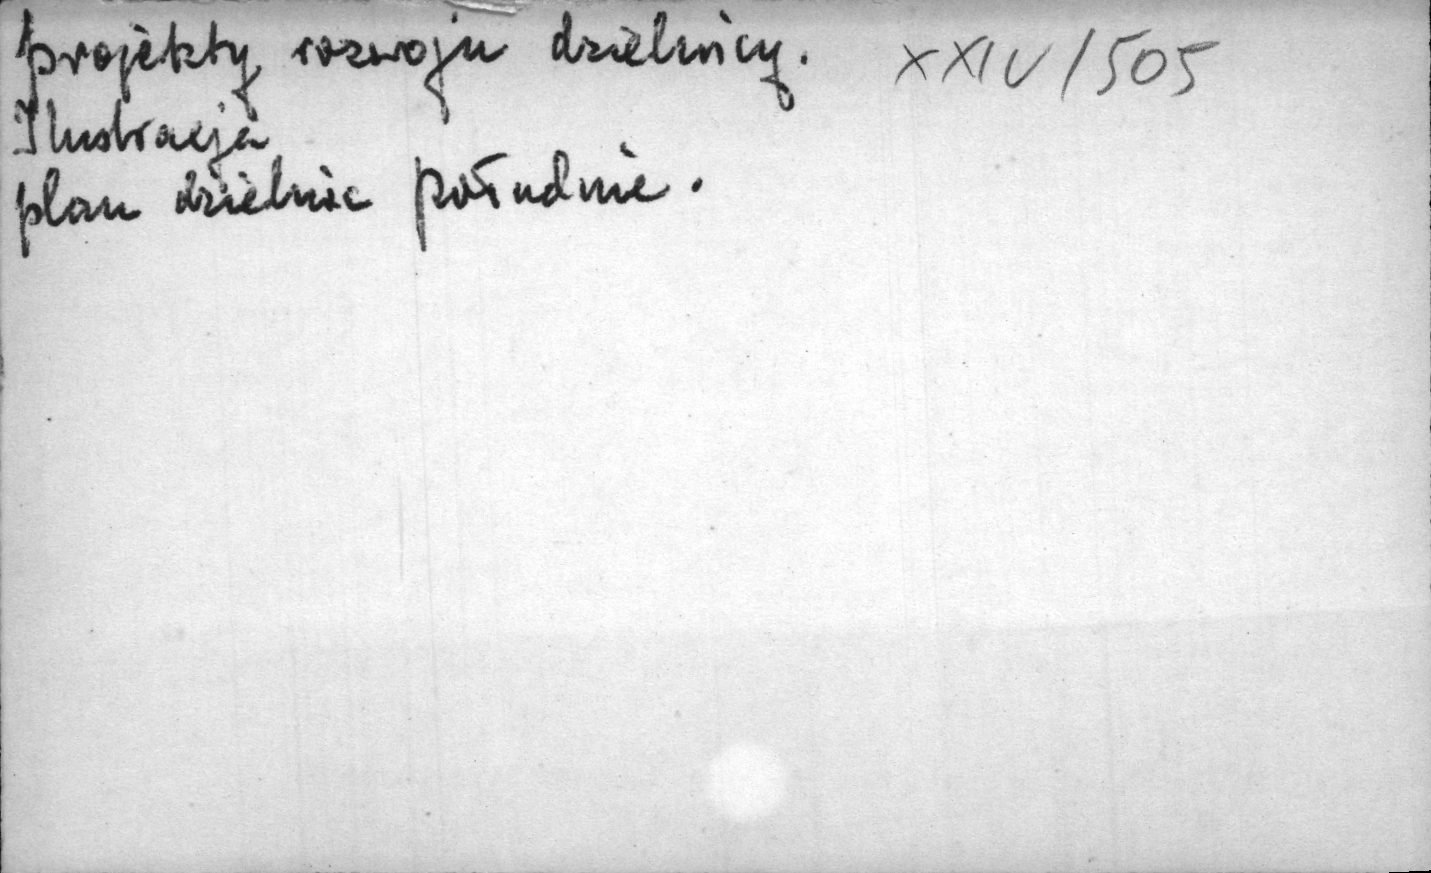 projekty rozwoju dzielnicy. XXIV/505
Ilustracja
plan dzielnic południe.